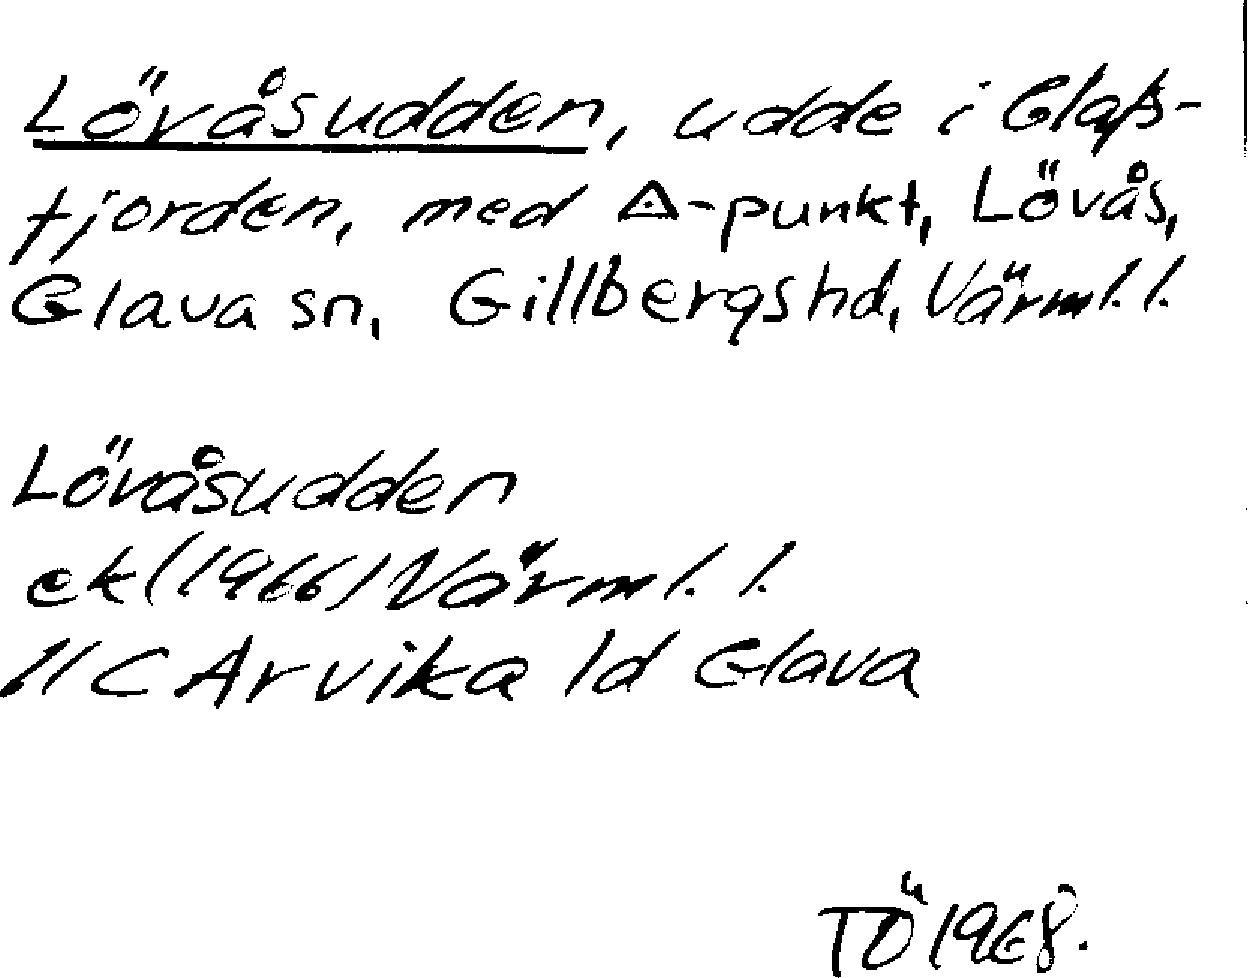 Lövåsudden, udde i Glafs-
fjorden, med △-punkt, Lövås,
Glava sn, Gillbergs hd, Värml. l.
Lövåsudden
ek (1966) Värml. l.
11C Arvika 1d Glava
TÖ 1968.